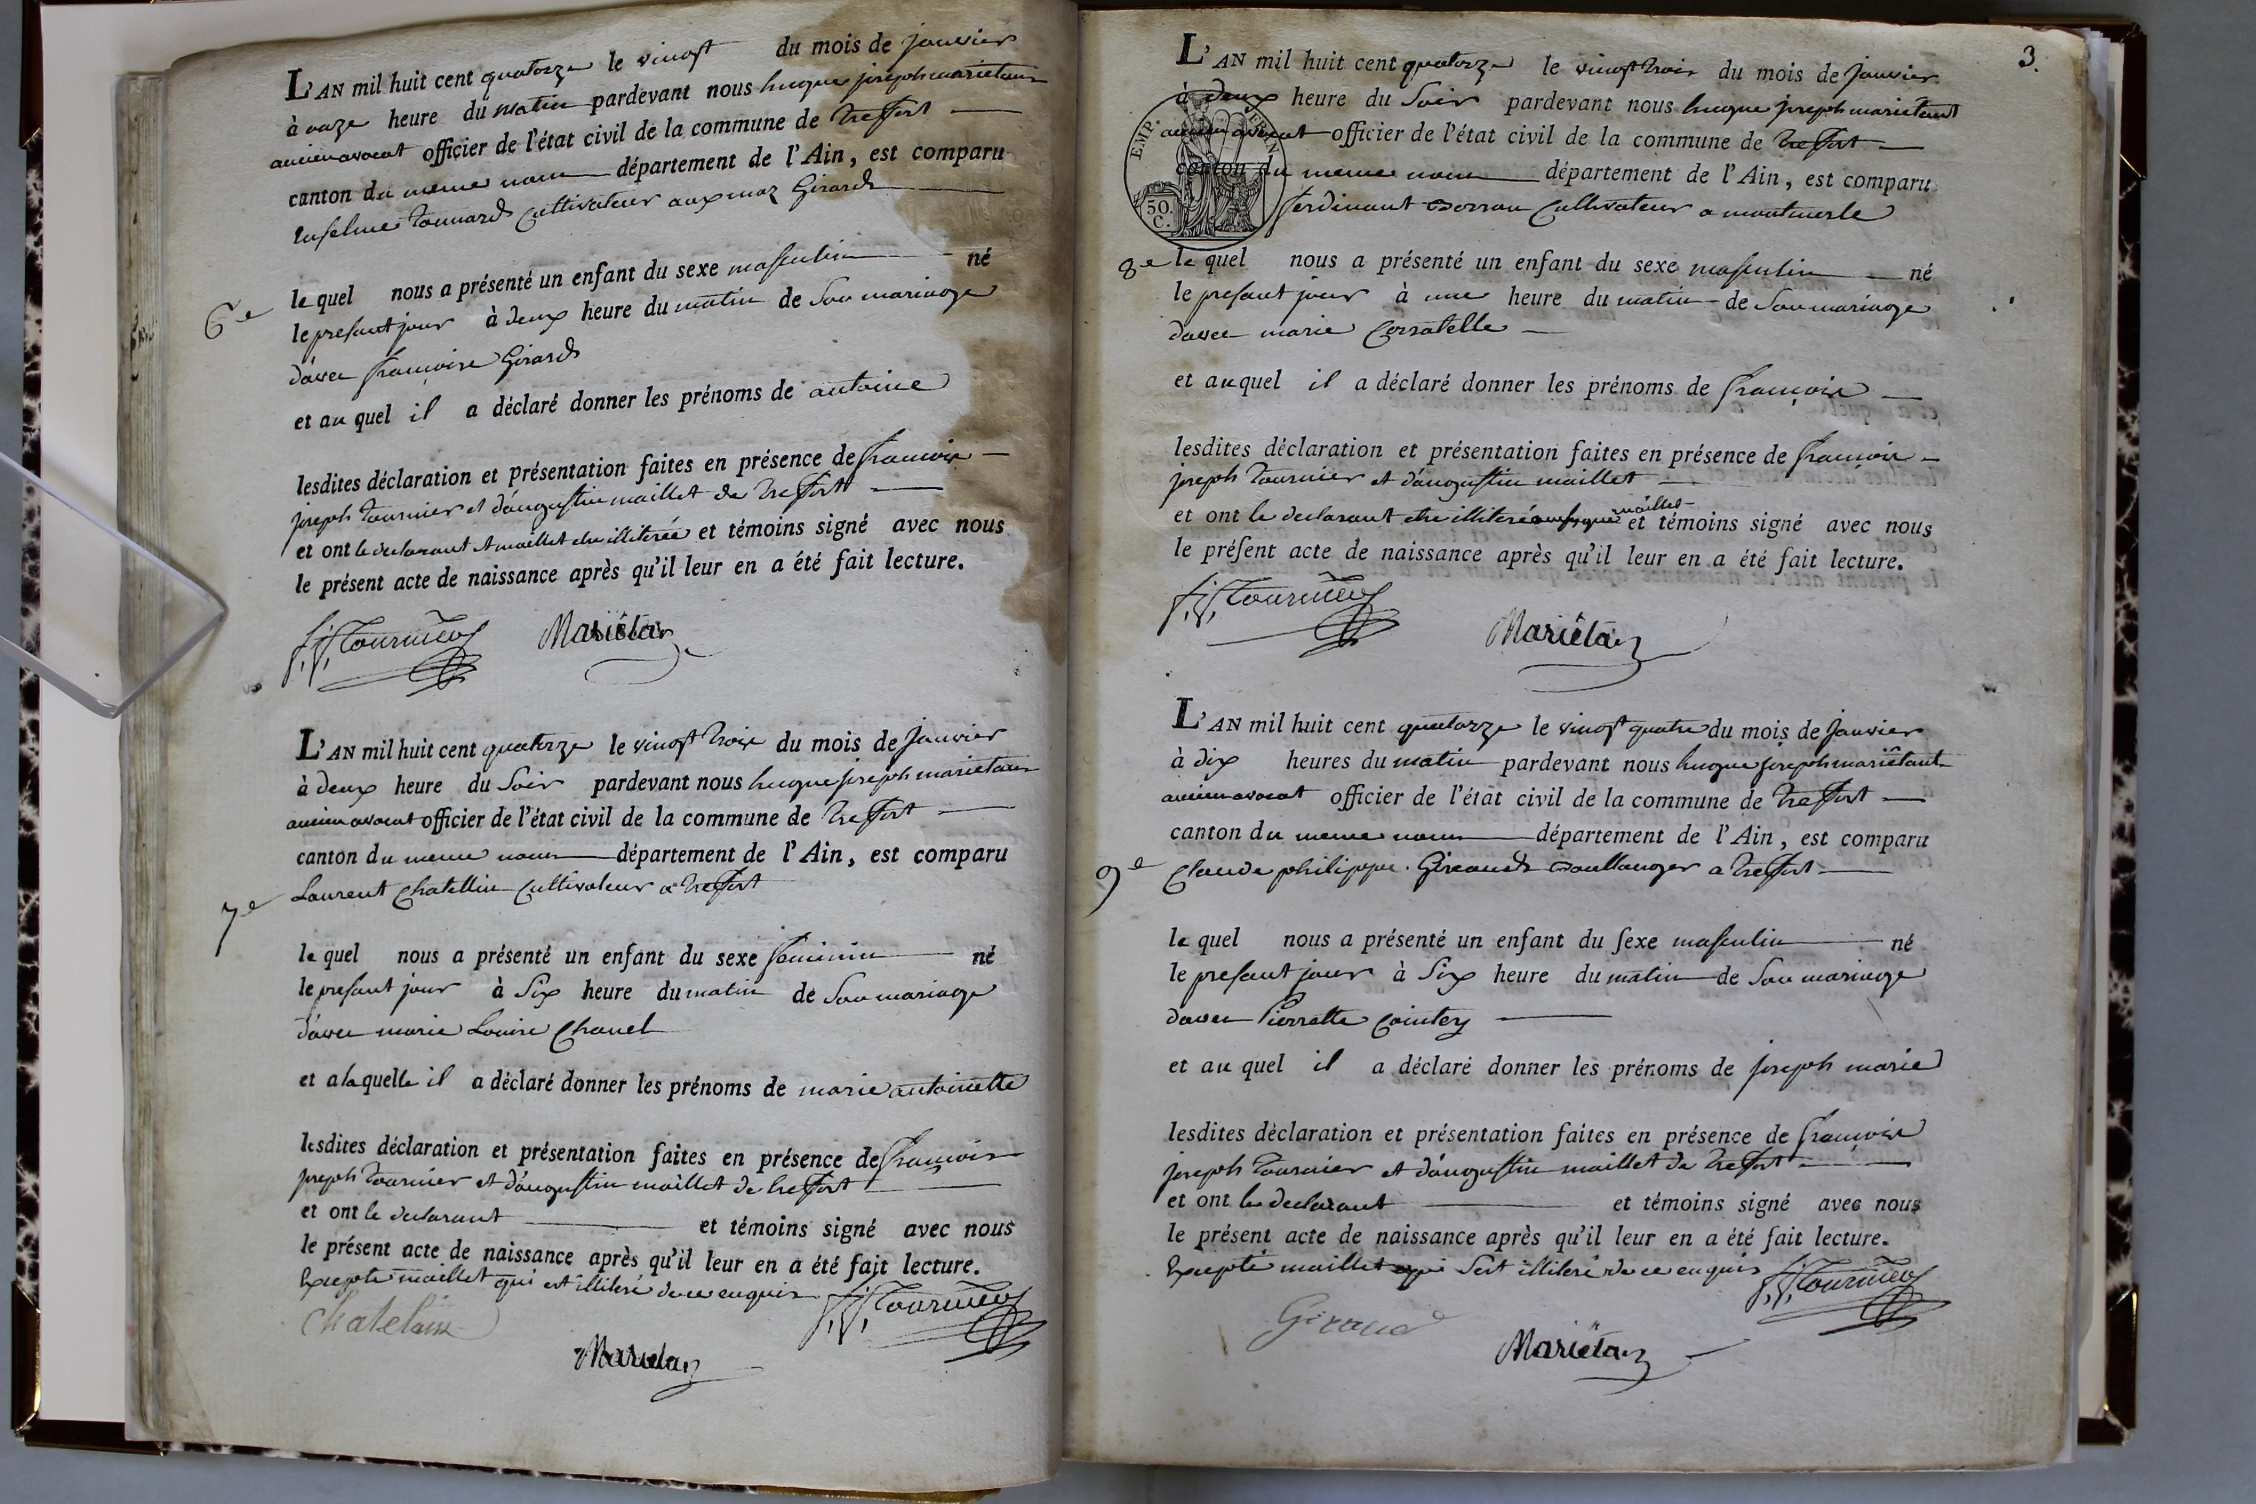 L'AN mil huit cent quatorze le vingt du mois de janvier
à onze heure du matin pardevant nous hugue joseph marietant
ancien avocat officier de l'état civil de la commune de treffort
canton du meme nom département de l'Ain, est comparu
anselme tounard cultivateur aux maz Girard
6e
le quel nous a présenté un enfant du sexe masculin né
le present jour à deux heure du matin de son mariage
d'avec françoise Girard
et au quel il a déclaré donner les prénoms de antoine
lesdites déclaration et présentation faites en présence de françois
joseph tournier et d'augustin maillet de treffort
et ont le declarant et maillet etre illiterée et témoins signé avec nous
le présent acte de naissance après qu'il leur en a été fait lecture.
f. j. Tournier Mariétan
L'AN mil huit cent quatorze le vingt trois du mois de janvier
à deux heure du soir pardevant nous hugue joseph marietan
ancien avocat officier de l'état civil de la commune de treffort
canton du meme nom département de l'Ain, est comparu
7e
Laurent Chatellin cultivateur a treffort
le quel nous a présenté un enfant du sexe feminin né
le present jour à six heure du matin de son mariage
d'avec marie Louise Chanel
et a laquelle il a déclaré donner les prénoms de marie antoinette
lesdites déclaration et présentation faites en présence de françois
joseph tournier et d'augustin maillet de treffort
et ont le declarant et témoins signé avec nous
le présent acte de naissance après qu'il leur en a été fait lecture.
Excepté maillet qui est illiteré de ce enquis f. j. Tournier
Chatelain
Mariétan
3.
L'AN mil huit cent quatorze le vingt trois du mois de janvier
à deux heure du soir pardevant nous hugue joseph marietant
ancien avocat officier de l'état civil de la commune de treffort
EMP. FRAN
canton du meme nom département de l'Ain, est comparu
50. C.
ferdinant borron cultivateur a montmerle
8e
le quel nous a présenté un enfant du sexe masculin né
le present jour à une heure du matin de son mariage
d'avec marie Corratelle
et au quel il a déclaré donner les prénoms de françois
lesdites déclaration et présentation faites en présence de françois
joseph tournier et d'augustin maillet
et ont le declarant etre illiteré ainsy que maillet et témoins signé avec nous
le présent acte de naissance après qu'il leur en a été fait lecture.
f. j. Tournier Mariétan
L'AN mil huit cent quatorze le vingt quatre du mois de janvier
à dix heures du matin pardevant nous hugue joseph mariëtant
ancien avocat officier de l'état civil de la commune de treffort
canton du meme nom département de l'Ain, est comparu
9e
Claude philippe Giraud boullanger a treffort
le quel nous a présenté un enfant du sexe masculin né
le present jour à six heure du matin de son mariage
d'avec Pierrette Cointey
et au quel il a déclaré donner les prénoms de joseph marie
lesdites déclaration et présentation faites en présence de françois
joseph tournier et d'augustin maillet de treffort
et ont le declarant et témoins signé avec nous
le présent acte de naissance après qu'il leur en a été fait lecture.
Excepté maillet qui s'est illiteré de ce enquis f. j. Tournier
Giraud
Mariétan